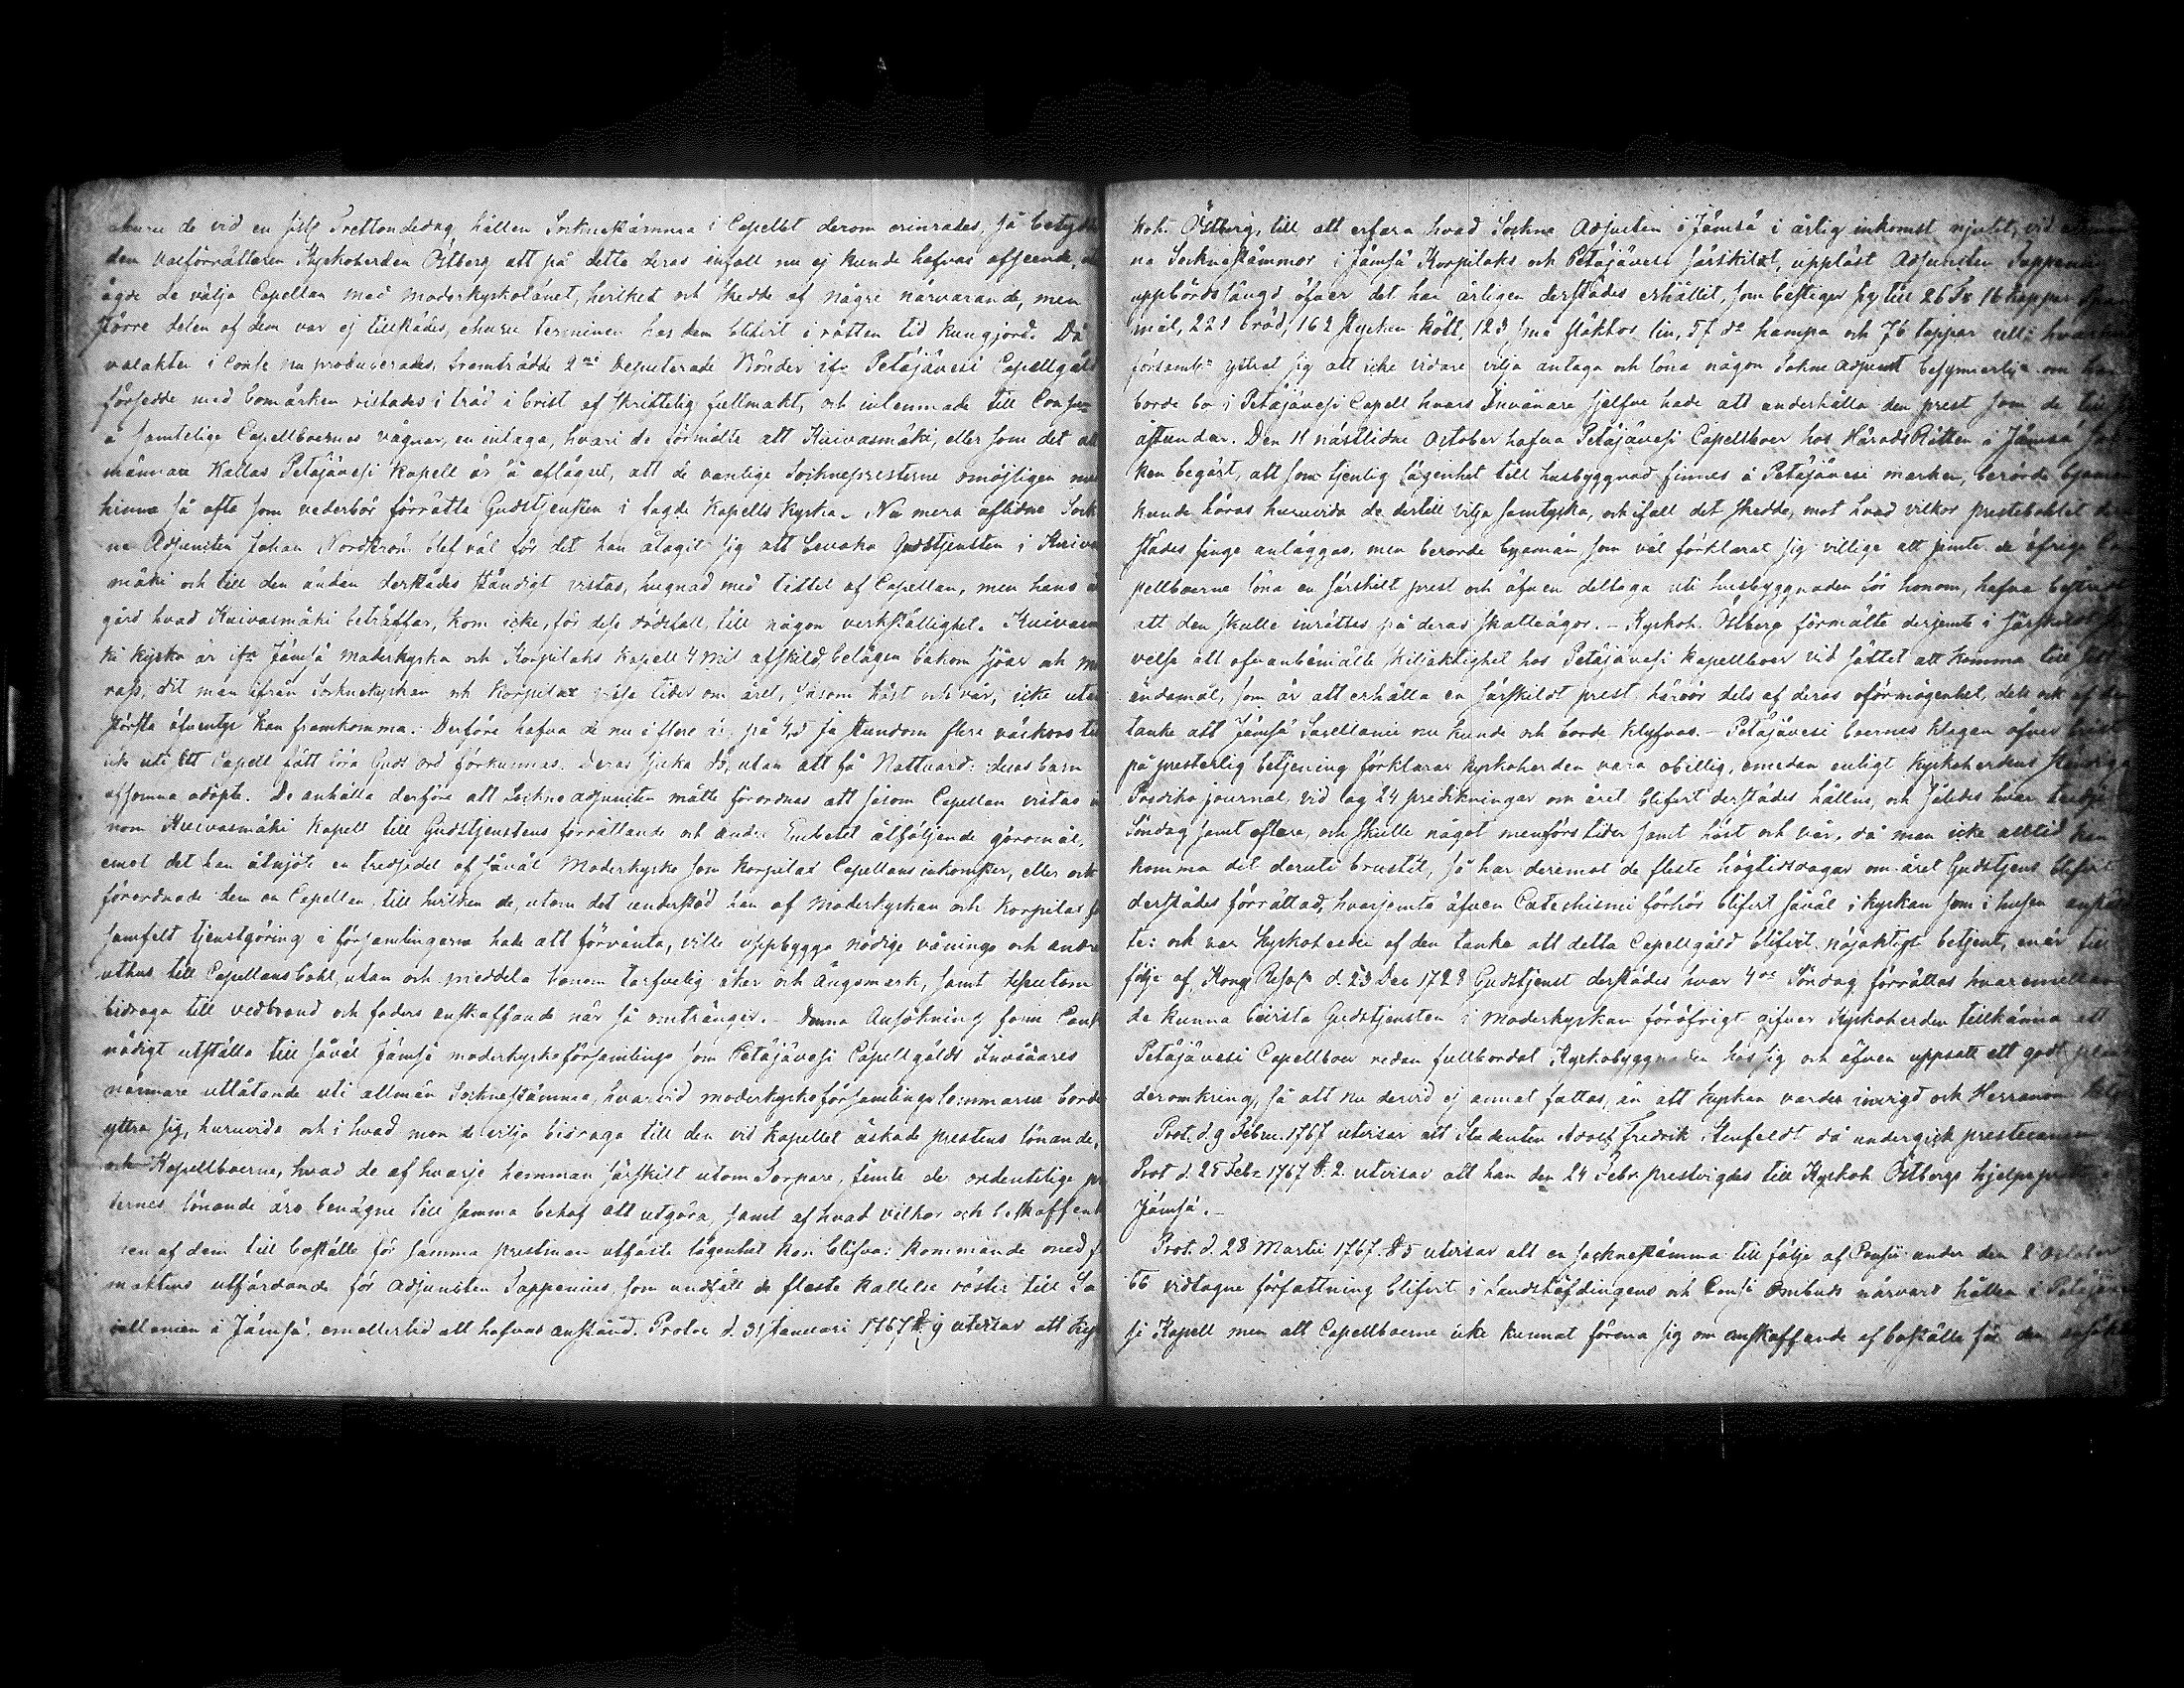 de vid en sistl Trettondedag hållen Sockneståmma i Capellet derom erinrades, så betydde
den Valförrättaren Kyrkoherden Östberg att på detta deras infall nu ej kunde hafvas afseende,
ägde de välja Capellan med moderkyrkolånet, hvilket och skedde af någre närvarande, men
större delen af dem var ej tillstädes, ehuru terminen hos dem blifvit i rättan tid kungjord. Då
valakten i Cons nu producerades, framträdde 2ne Deputerade Bönder ifr Petäjävesi Capellgäld
försedde med bomärken ristade i träd i brist af skriftelig fullmakt, och inlemnade till
å samtelige Capellboernes vägnar, en inlaga, hvari de förmälte att Kuivasmäki, eller som det all
männare kallas Petäjävesi kapell är så aflägset, att de vanlige Socknepresterne omöjligen
hinna så ofta som vederbör förrätta Gudstjensten i sagde kapells kyrka. Nu mera aflidne Sock
ne Adjuncten Johan Nordström blef väl för det han åtagit sig att bevaka Gudstjensten i Kuivas
mäki och till den ändan derstädes ständigt vistas, hugnad med tittel af Capellan, men hans
gärd hvad Kuivasmäki beträffar, kom icke, för dess dödsfall, till någon verkställighet. Kuivasmä
ki kyrka är ifrn Jämsä moderkyrka och Korpilaks kapell 4 mil afskild, belägen bakom sjöar och mo
rass, dit man ifrån Socknekyrkan och Korpilax vissa tider om året, såsom höst och vår, icke utan
största äfventyr kan framkomma. Derföre hafva de nu i flere år på 4, ja stundom flere veckors tid
icke uti ett Capell fått höra Guds ord förkunnas. Deras sjuka dö, utan att få Nattvard: deras barn
afsomna odöpte. De anhålla derföre att Sockne adjuncten måtte förordnas att såsom Capellan vistas in
nom Kuivasmäki kapell till Gudstjenstens förrättande och andre Embetet åtföljande göromål,
emot det han åtnjöte en tredjedel af såväl Moderkyrko som Korpilax Capellans inkomster, eller ock
förordnade dem en Capellan, till hvilken de, utom det understöd han af Moderkyrkan och Korpilax för
samfelt tjenstgöring i församlingarna hade att förvänta, ville uppbygga nödige vånings och andre
uthus till Capellansbohl, utan och meddela honom tarfvelig åker och ängsmark, samt dessutom
bidraga till vedbrand och foders anskaffande når så omtränger. - Denna Ansökning fann Cons
nödigt utställa till såväl Jämsä moderkyrkoförsamlings som Petäjävesi Capellgälds Invånares
närmare utlåtande uti allmän Sockneståmma, hvarvid moderkyrkoförsamlings borde
yttra sig, huruvida och i hvad mon de vilja bidraga till den vid kapellet äskade prestens lönande,
och Kapellboerne, hvad de af hvarje hemman särskilt utom Torpare, jämte de ordentelige pre
sternes lönande äro benägne till samma behof att utgöra, samt af hvad vilkor och beskaffenh
ten af dem till boställe för samma prestman utfäste lägenhet kan blifva: kommande med
maktens utfärdande för adjuncten Tappenius, som undfått de fleste kallelse röster till Sa
cellanien i Jämsä, emellertid att hafvas anstånd. Protoc. d. 31 Januari 1767 § 9 utvisar att Kyr
koh. Östberg, till att erfara hvad Sockne Adjuncten i Jämsä i årlig inkomst njutit, vid allmän
na Sockneståmmor i Jämsä Korpilaks och Petäjävesi särskildt, uppläst Adjuncten Tappenii
uppbördslängd öfver det han årligen derstädes erhållit, som bestiger sig till 26 Tr 16 kappar
mål, 221 bröd, 162 stycken kött, 123 små släktor lin, 57 do hampa och 76 tappar ull: hvar
församl: yttrat sig att icke vidare vilja antaga och löna någon Sokne adjunct besynnerlig om han
borde bo i Petäjävesi Capell hvars Invånare sjelfve hade att underhålla den prest som de till
åstundar. Den 11 nästlidne October hafva Petäjävesi Capellboer hos HäradsRätten i Jämsä
ken begärt, att som tjenlig lägenhet till husbyggnad finnes å Petäjävesi marken, berörde byamän
kunde höras huruvida de dertill vilja samtycka, och ifall det skedde, mot hvad vilkor prestebohlet der
städes finge anläggas, men berörde byamän, som väl förklarat sig villige att jemte de öfrige Ca
pellboerne löna en särskilt prest och äfven deltaga uti husbyggnaden för honom, hafva bestridt
att den skulle inrättas på deras skatteägor. - Kyrkoh. Östberg förmälte derjemte i särskild
velse att ofvanbemälte skiljaktighet hos Petäjävesi kapellboer vid sättet att komma till sitt
ändamål, som är att erhålla en särskildt prest, härrör dels af deras oförmögenhet, dels ock af den
tanke att Jämsä Sacellanie nu kunde och borde klyfvas. - Petäjävesi boernes klagan öfver brist
på presterlig betjening förklarar kyrkoherden vara obillig, emedan enligt kyrkoherdens ständiga
Prediko journal, vid lag 24 predikningar om året blifvit derstädes hållne, och således hvar tredje
Söndag samt oftare, och skulle något menförs tider samt höst och vår, då man icke alltid kan
komma dit deruti brustit, så har deremot de fleste högtidsdagar om året Gudstjenst blifvit
derstädes förrättad, hvarjemte äfven Catechismi förhör blifvit såväl i kyrkan som i husen anstäl
te: och var kyrkoherden af den tanke att detta Capellgäld blifvit nöjaktigt betjent, enär till
följe af Kong Resol d. 23 Dec 1728 Gudstjenst derstädes hvar 4de Söndag förrättas hvaremellan
de kunna bevista Gudstjensten i Moderkyrkan föröfrigt gifver Kyrkoherden tillkänna att
Petäjävesi Capellboer redan fullbordat Kyrkobyggnaden hos sig och äfven uppsatt ett godt plank
deromkring, så att nu dervid ej annat fattas, än att kyrkan varder invigd och Herranom
Prot. d. 9 Febru. 1767 utvisar att Studenten Adolf Fredrik Stenfeldt då undergick prestexamen
Prot d. 25 Febr 1767 §. 2. utvisar att han den 24 Febr. prestvigdes till Kyrkoh Östbergs hjelpeprest i
Jämsä. -
Prot. d. 28 Martii 1767. § 5 utvisar att en sockneståmma till följe af Consii under den 8 October
66 vidtagne författning blifvit i Landshöfdingens och Consi Ombuds närvaro hållen i Petäjäve
si Kapell men att Capellboerne icke kunnat förena sig om anskaffande af boställe för den